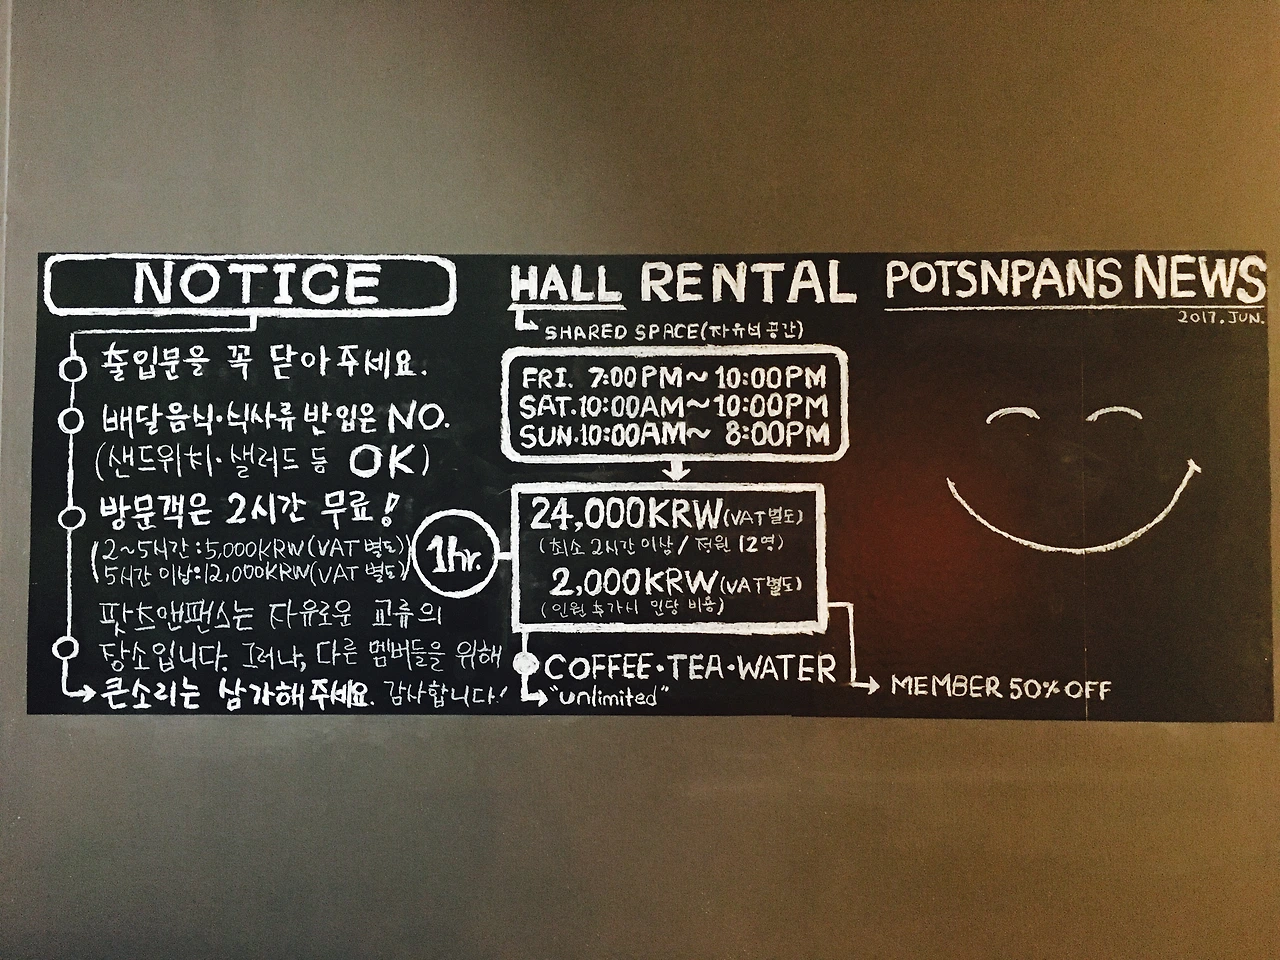 NOTICE
출입문을 꼭 닫아주세요.
배달음식·식사류 반입은 NO.
(샌드위치·샐러드 등 OK)
방문객은 2시간 무료!
(2~5시간:5,000KRW(VAT 별도)
5시간 이상:12,000KRW(VAT 별도))
팟츠앤팬스는 자유로운 교류의
장소입니다. 그러나, 다른 멤버들을 위해
큰소리는 삼가해주세요. 감사합니다!
HALL RENTAL
SHARED SPACE(자유석 공간)
FRI. 7:00PM~10:00PM
SAT.10:00AM~10:00PM
SUN.10:00AM~ 8:00PM
1hr.
24,000KRW(VAT별도)
(최소 2시간 이상/정원 12명)
2,000KRW(VAT별도)
(인원 추가시 인당 비용)
COFFEE·TEA·WATER
"unlimited"
MEMBER 50% OFF
POTSNPANS NEWS
2017.JUN.